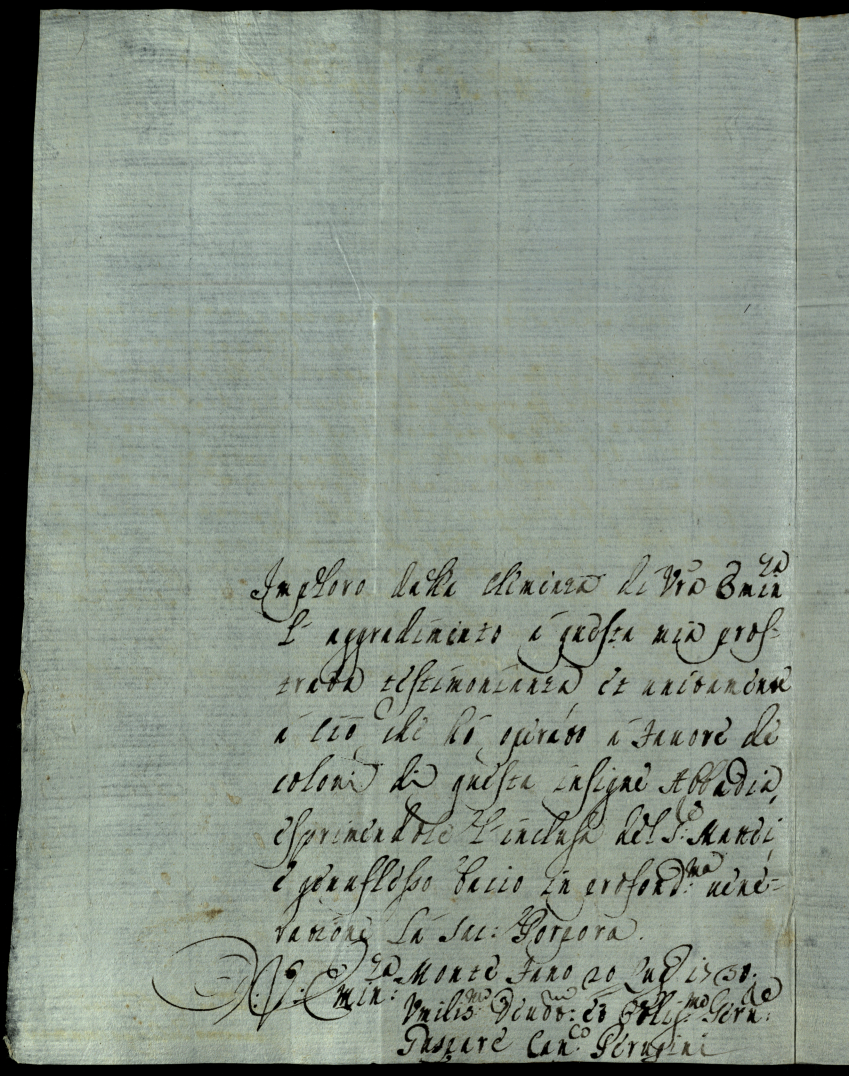 Imploro dalla clemenza di Vrã Emin.za
l'aggradimento à questa mia pros-
trata testimonianza et unitamente
à ciò che hò operato à favore de
coloni di questa insigne Abbadia,
esprimendole l'inclusa del S.e Mattei,
e genuflesso bacio in profond.ma vene-
ratione la Sac: Porpora.
D. V. Emin:za Monte Fano 20 Lug
Umilis.mo Devõ.mo et Oblig.mo Serv.e
Gaspare Can.co Perugini